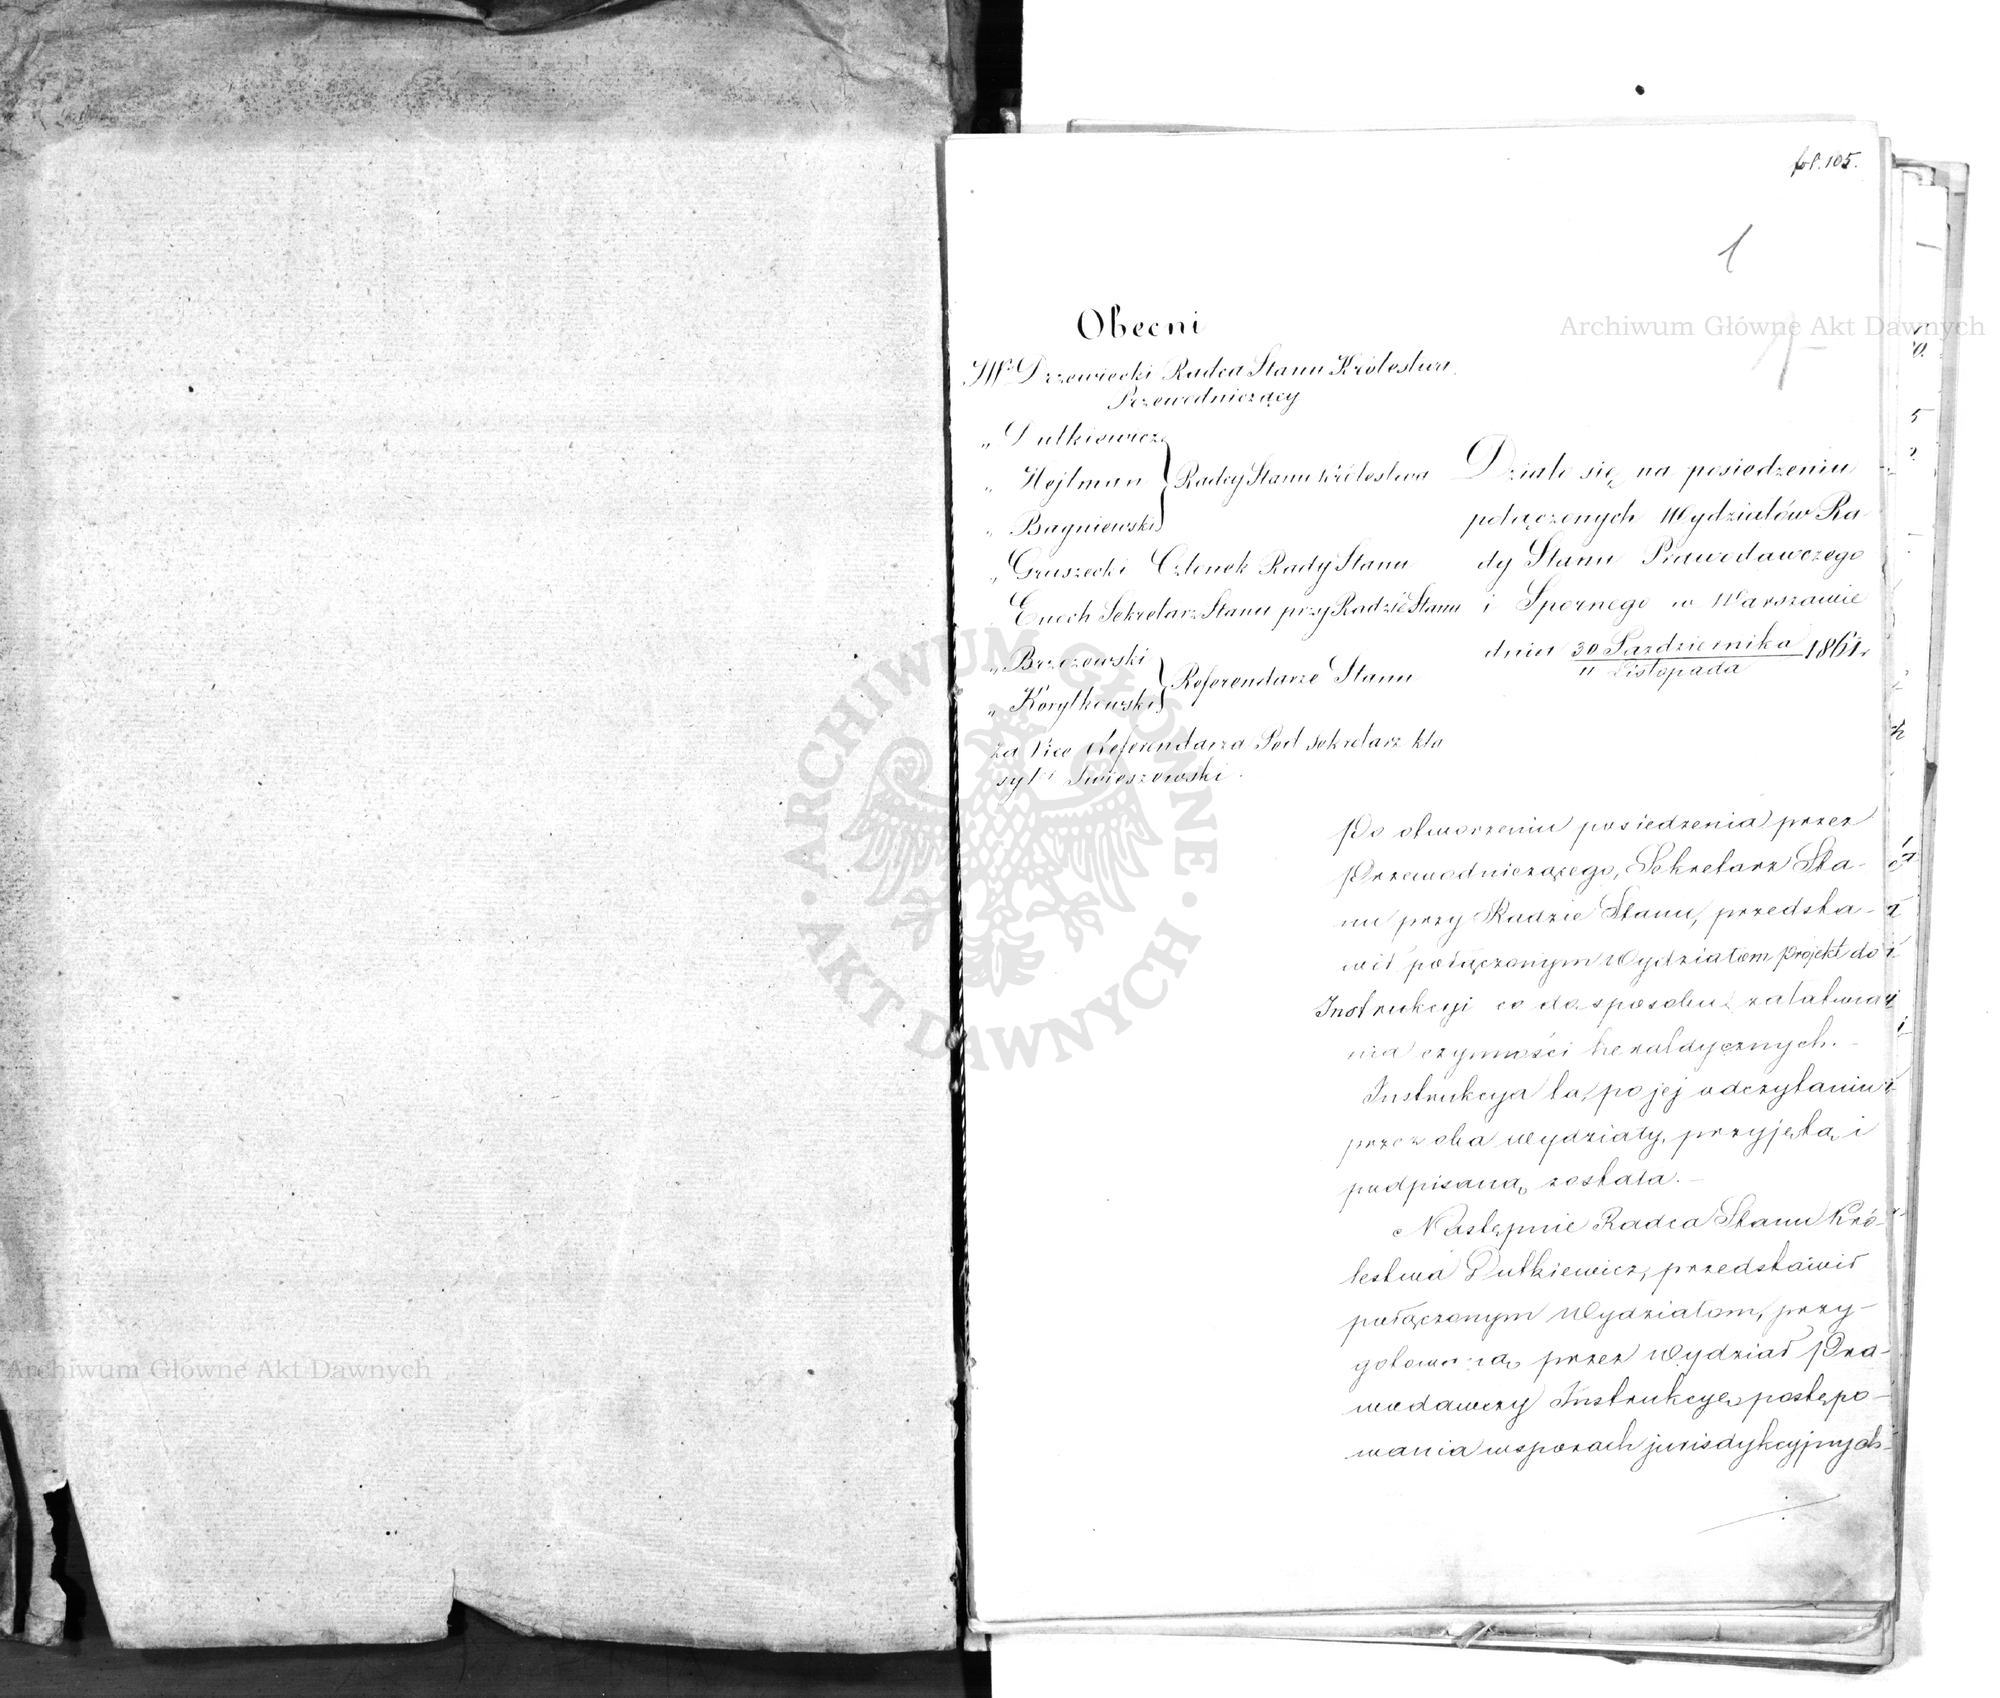 fol. 105.
1
Obecni
JW. Drzewiecki Radca Stanu Królestwa
Przewodniczący
„ Dutkiewicz
„ Hejlman } Radcy Stanu Królestwa
„ Bagniewski
„ Gruszecki Członek Rady Stanu
Enoch Sekretarz Stanu przy Radzie Stanu
„ Brzozowski
„ Korytkowski } Referendarze Stanu
za Vice Referendarza Pod Sekretarz kla
sy Świeszewski
Działo się na posiedzeniu
połączonych Wydziałów Ra
dy Stanu Prawodawczego
i Spornego w Warszawie
dnia 30 Października 1861 r.
11 Listopada
Po otworzeniu posiedzenia przez
Przewodniczącego, Sekretarz Sta-
nu przy Radzie Stanu, przedsta-
wił połączonym Wydziałom projekt do
Instrukcyi co do sposobu załatwia
nia czynności heraldycznych. –
Instrukcya ta, po jej odczytaniu
przez oba wydziały, przyjętą i
podpisaną została. –
Następnie Radca Stanu Kró-
lestwa Dutkiewicz, przedstawił
połączonym Wydziałom, przy-
gotowaną przez Wydział Pra-
wodawczy Instrukcyę postępo-
wania w sporach jurisdykcyjnych
Archiwum Główne Akt Dawnych
Archiwum Główne Akt Dawnych
ARCHIWUM GŁÓWNE · AKT DAWNYCH ·